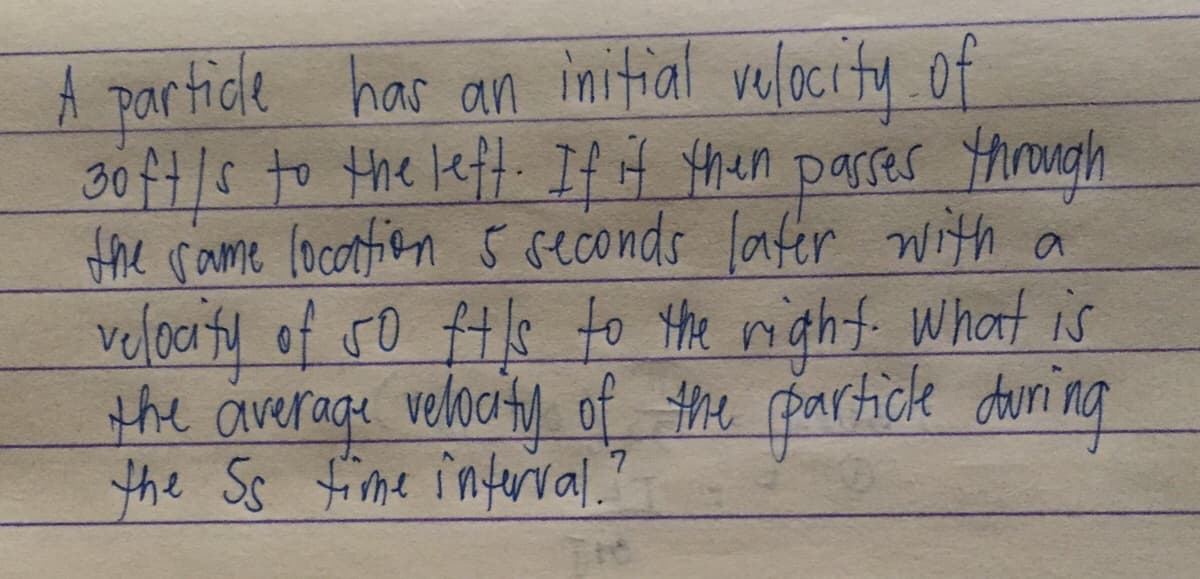 A particle has an initial velocity of
30 ft/s to the left. If it then passes through
the same location 5 seconds later with a
velocity of 50 ft/s to the right. What is
the average velocity of the particle during
the 5s time interval.?